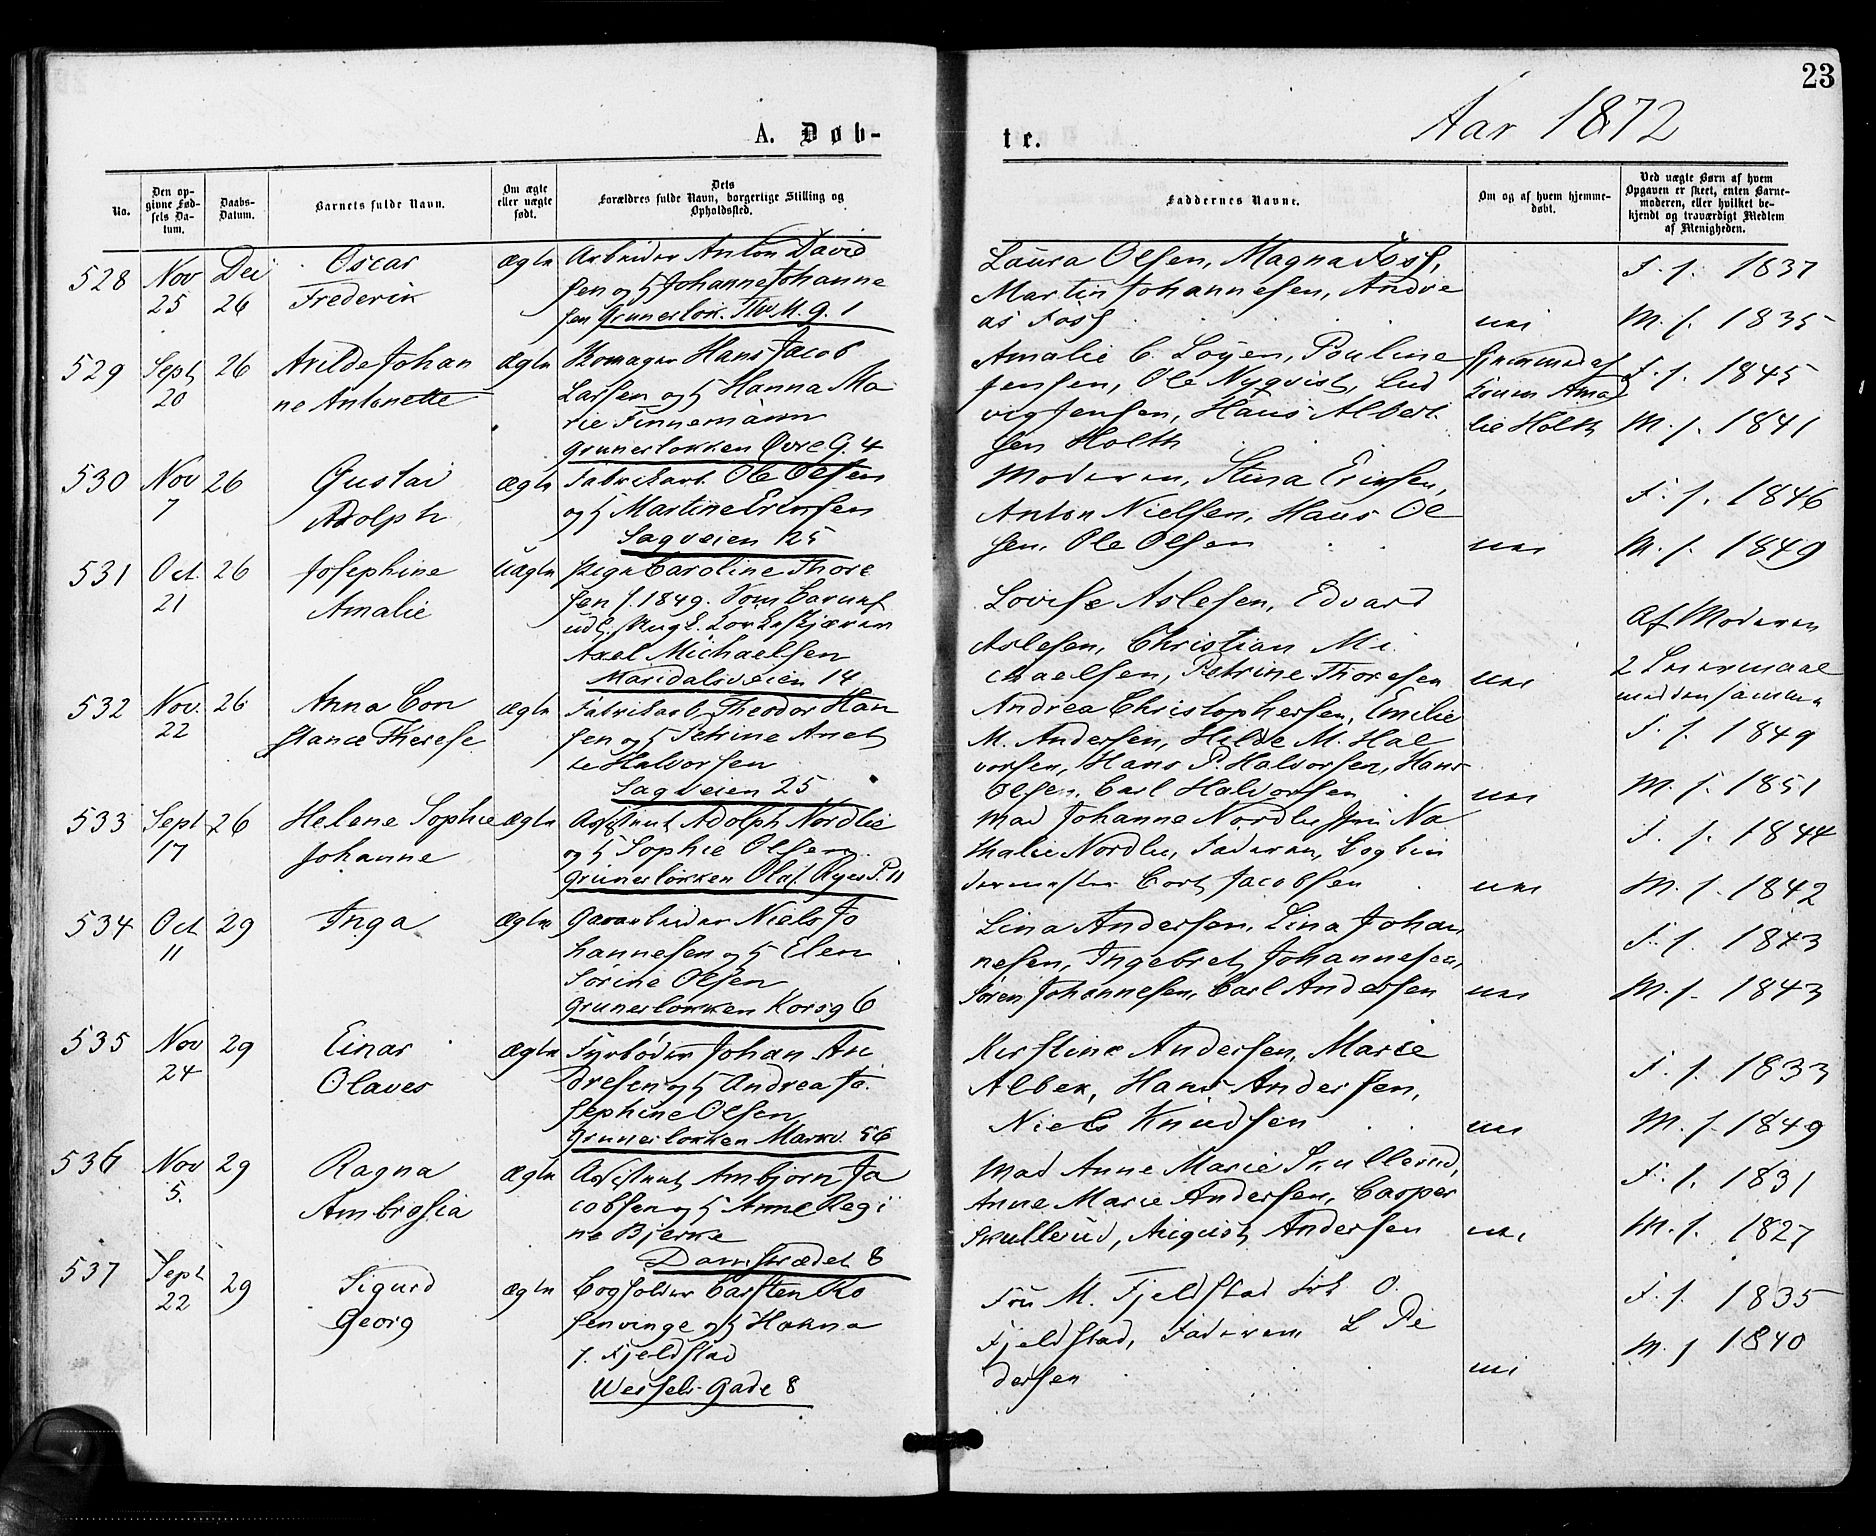 23
Aar 1872
A. Døb-
te.
No.
Den op-
givne Fød-
sels Da-
tum.
Daabs-
Datum.
Barnets fulde Navn.
Om ægte
eller uægte
født.
Dets
Forældres fulde Navn, borgerlige Stilling og
Opholdssted.
Faddernes Navne.
Om og af hvem hjemme-
døbt.
Ved uægte Børn af hvem
Opgaven er skeet, enten Barne-
moderen, eller hvilket be-
kjendt og troværdigt Medlem
af Menigheden.
528
Nov
25
Dec
26
Oscar
Frederik
Ægte
Arbeider Anton David
sen og H Johanne Johanne
sen Grunerløk. Thv. M. G. 1
Laura Olsen, Magna Foss,
Martin Johannesen, Andre
as Foss
F. f. 1837
M. f. 1835
529
Sept
20
26
Avilde Johan
ne Antonette
Ægte
Skomager Hans Jacob
Larsen og H Hanna Ma
rie Finnemann
Grunerløkken Øvre G. 4
Amalie C. Løyen, Pauline
Jensen, Ole Nyqvist, Lud
vig Jensen, Hans Albert
sen Holth
hjemmed af
Louise Ama
lie Holth
F. f. 1845
M. f. 1841
530
Nov
7
26
Gustav
Adolph
Ægte
Fabrikarb. Ole Olsen
og H Martine Eriksen
Sagveien 125
Moderen, Stina Eriksen,
Anton Nielsen, Hans Ol
sen, Ole Olsen
F. f. 1846
M. f. 1849
531
Oct.
21
26
Josephine
Amalie
Uægte
Pige Caroline Thore
sen f. 1849. Som Barnef
Axel Michaelsen
Maridalsveien 14
Lovise Aslesen, Edvard
Aslesen, Christian Mi
chaelsen, Petrine Thoresen
Af Moderen
2 Leiermaal
med den samme
532
Nov.
22
26
Anna Con
stance Therese
Ægte
Fabrikarb. Theodor Han
sen og H Petrine Anet
te Halvorsen
Sagveien 25
Andrea Christophersen, Emilie
M. Andersen, Hilde M. Hal
vorsen, Hans P. Halvorsen, Hans
Olsen, Carl Halvorsen
F. f. 1849
M. f. 1851
533
Sept
17
26
Helene Sophie
Johanne
Ægte
Assistent Adolph Nordlie
og H Sophie Olsen
Grunerløkken Olaf Ryes P. 11
Mad Johanne Nordlie, Na
thalie Nordlie, Faderen, Bogbin
dermester Cort Jacobsen
F. f. 1844
M. f. 1842
534
Oct
11
29
Inga
Ægte
Gasarbeider Niels Jo
hannesen og H Elen
Sørine Olsen
Grunerløkken Korsg 6
Lina Andersen, Lina Johan
nesen, Ingebret Johannesen,
Søren Johannesen, Carl Andersen
F. f. 1843
M. f. 1843
535
Nov
24
29
Einar
Olaves
Ægte
Fyrbøder Johan An
dresen og H Andrea Jo
sephine Olsen
Grunerløkken Markv. 56
Kirstine Andersen, Marie
Albek, Hans Andersen,
Niels Knudsen
F. f. 1833
M. f. 1849
536
Nov
5.
29
Ragna
Ambrosia
Ægte
Assistent Ambjørn Ja
cobsen og H Anne Regi
ne Bjerke
Damstrædet 8
Mad Anne Marie Skullerud,
Anne Marie Andersen, Casper
Skullerud, August Andersen
F. f. 1831
M. f. 1827
537
Sept
22
29
Sigurd
Georg
Ægte
Bogholder Carsten Ro
senvinge og H Hakna
f. Fjeldstad
Wessels Gade 8
Fru M. Fjeldstad Frk O.
Fjeldstad, Faderen L Pe
dersen
F. f. 1835
M. f 1840